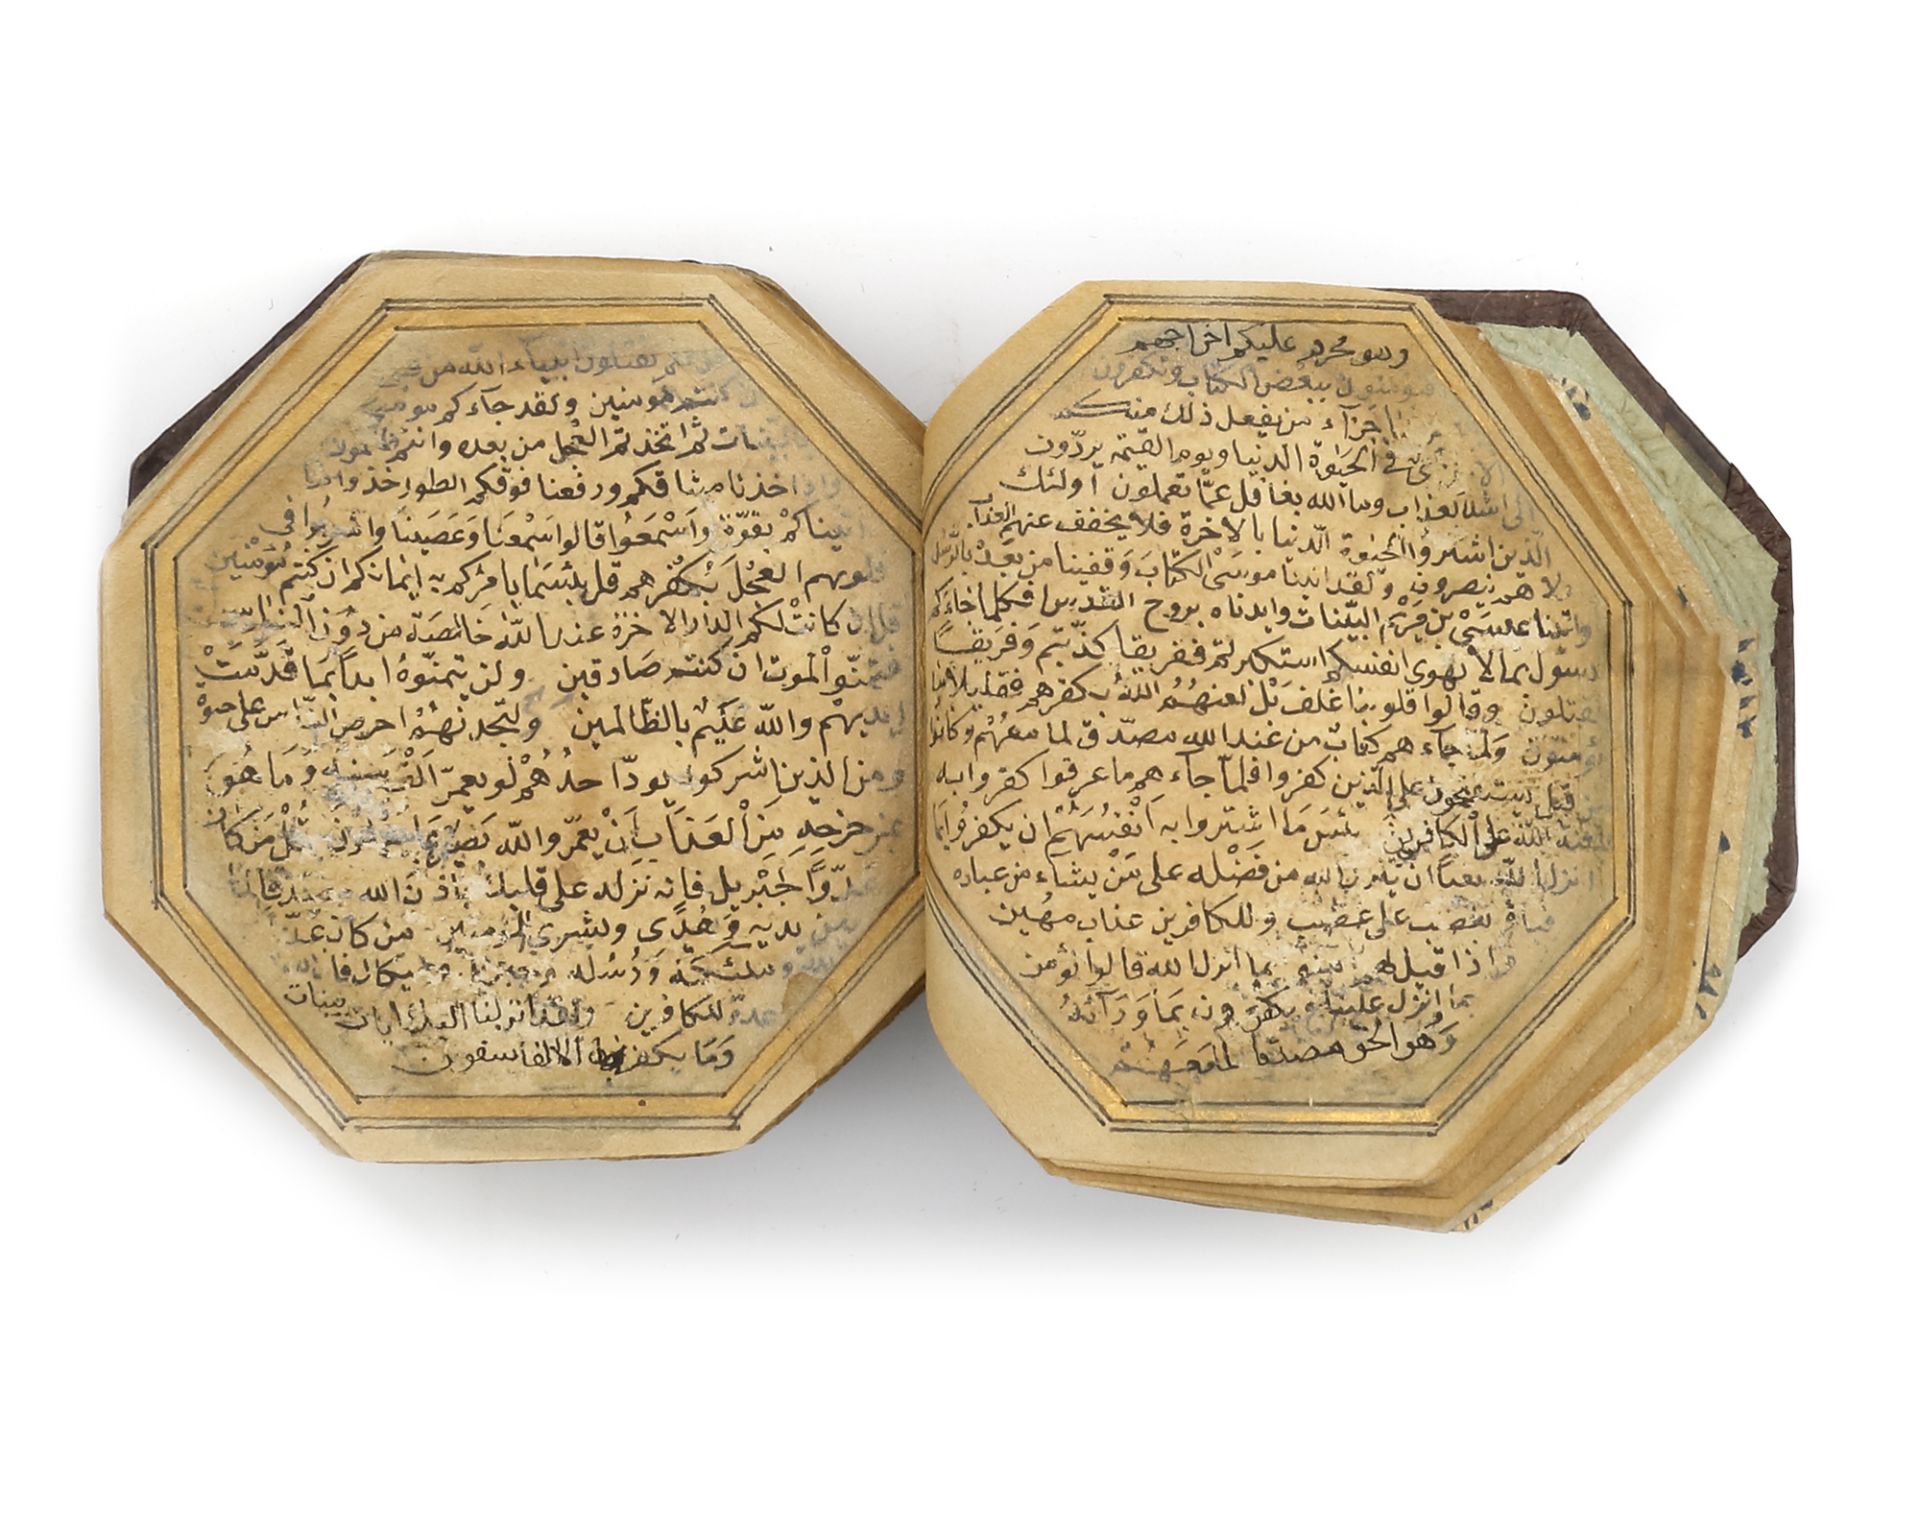 وهو محرم عليكم اخراجهم
ببعض الكتاب وتكفرون
جزآء من يفعل ذلك منكم
في الحيوة الدنيا ويوم القيمة يردّون
الى اشد العذاب وما الله بغافل عمّا تعملون اولئك
الّذين اشتروُا الحيوة الّدنيا بالاخرة فلا يخفف عنهم العذاب
ولا هم ينصرون ولقد اتينا موسَى الكتابَ وَقفينا من بعدْ بالرّسل
واتينا عيسَىْ بن مَرْيَم البيّنات وايدناه بروح القدس افكلما جآءَكم
رسول بما لا تهوى انفسكم استكبرتم ففريقا كذّبتم وَفريقًا
تقتلون وقالوا قلوبنا غلف بَلْ لعنهُمُ اللهُ بكفرهم فقليلا ما
يؤمنون وَلما جآء هم كتابٌ من عند الله مصدّق لما معهُمْ وكانوا
من قبل يستفتحون على الّذين كفروا فلمّا جآء هم ما عرفوا كفروا به
فلعنة اللّه على الكافرين بئسَ مَا اشتروا به اَنْفسَهُمْ ان يكفرُوا بما
انزل اللّه بغياً ان يّنزل الله من فَضْله على مَنْ يشاء من عباده
فباؤ بغضب على غضب وللكافرين عذاب مهُين
واذا قيل لهم بما انزل الله قالوا نؤمن
بما انزل علينا ويكفرون بمَا وَرَآئهُ
وَهُوَ الحق مصدقا لما معهم
تقتلون انبيآء الله من قبل
كنتم مؤمنين ولقد جآءكم موسى
بالبينات ثم اتخذتم العجل من بعده وانتم ظالمون
واذ اخذنا ميثاقكم ورفعنا فوقكم الطور خذوا ما
اتيناكمْ بقوّة وَاسْمعَوُا قالوا سَمْعنَا وَعَصَينا واشربُوا في
قلوبهم العجْلَ بكُفرهم قل بئسَما يامُركم به ايمانكم ان كنتم مُؤمنين
قل ان كانتْ لكم الدار الاخرة عند اللّه خَالصَة من دوُن الناس
فتمنّوا لموت ان كنتم صَادقين ولن يتمنّوهُ ابداً بمَا قدّمَتْ
ايديهمْ واللّه عَليْم بالظّالمين ولتجدنهُمْ احرص النّاس على حيوة
ومن الذين اشركوا يودّ احدُهُمْ لو يعمّر اَلْفَ سنة وَمَا هُوَ
بمزحزحِهِ مِنَ الْعَذابِ اَنْ يعمّر واللّه بَصيرٌ بما يعملون قُلْ مَنْ كان
عدوًّا لجِبْريل فانه نزله على قلبك باذن الله مصدقا لما
بين يديه وَهُدًى وبشرى للمؤمنين من كان عدوّا
للّه وملئكته وَرُسُله وجبريل وميكال فان الله
عدوّ للكافرين ولقد انزلنا اليك ايات بينات
وَمَا يكفر بها الا الفاسقون